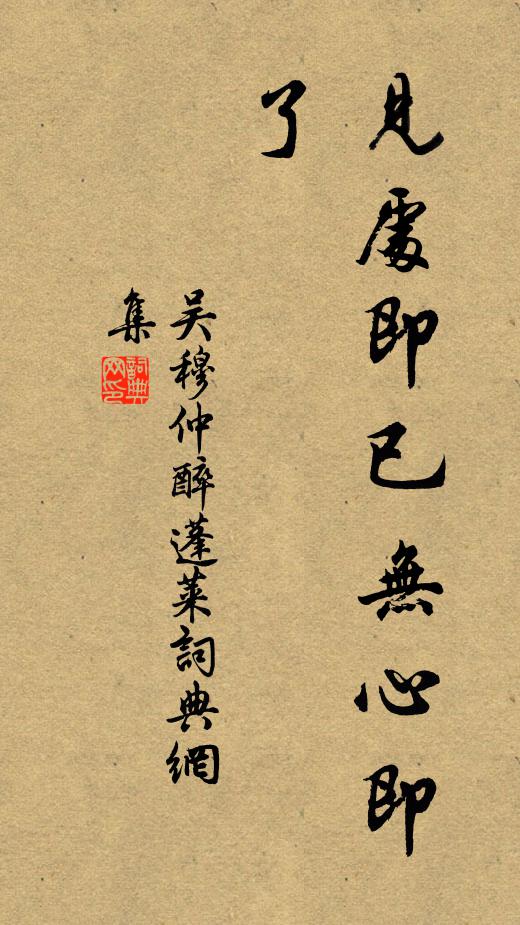 見處即已無心即
了
吳穆仲醉蓬萊詞典網
集
詞典
网印